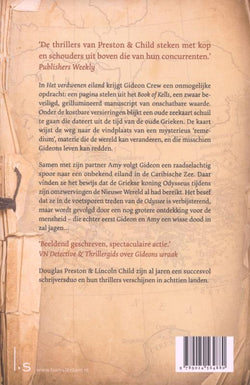 'De thrillers van Preston & Child steken met kop
en schouders uit boven die van hun concurrenten.'
Publishers Weekly
In Het verdwenen eiland krijgt Gideon Crew een onmogelijke
opdracht: een pagina stelen uit het Book of Kells, een zwaar be-
veiligd, geïllumineerd manuscript van onschatbare waarde.
Onder de kostbare versieringen blijkt een oude zeekaart schuil
te gaan die dateert uit de tijd van de oude Grieken. De kaart
wijst de weg naar de vindplaats van een mysterieus 'reme-
dium', materie die de wereld kan veranderen, en die misschien
Gideons leven kan redden.
Samen met zijn partner Amy volgt Gideon een raadselachtig
spoor naar een onbekend eiland in de Caribische Zee. Daar
vinden ze het bewijs dat de Griekse koning Odysseus tijdens
zijn omzwervingen de Nieuwe Wereld al had bereikt. Het besef
dat ze in de voetsporen treden van de Odyssee is verbijsterend,
maar wordt gevolgd door een nog grotere ontdekking voor de
mensheid – die echter eerst Gideon en Amy een wisse dood in
zal jagen...
'Beeldend geschreven, spectaculaire actie.'
VN Detective & Thrillergids over Gideons wraak
Douglas Preston & Lincoln Child zijn al jaren een succesvol
schrijversduo en hun thrillers verschijnen in achttien landen.
L·S